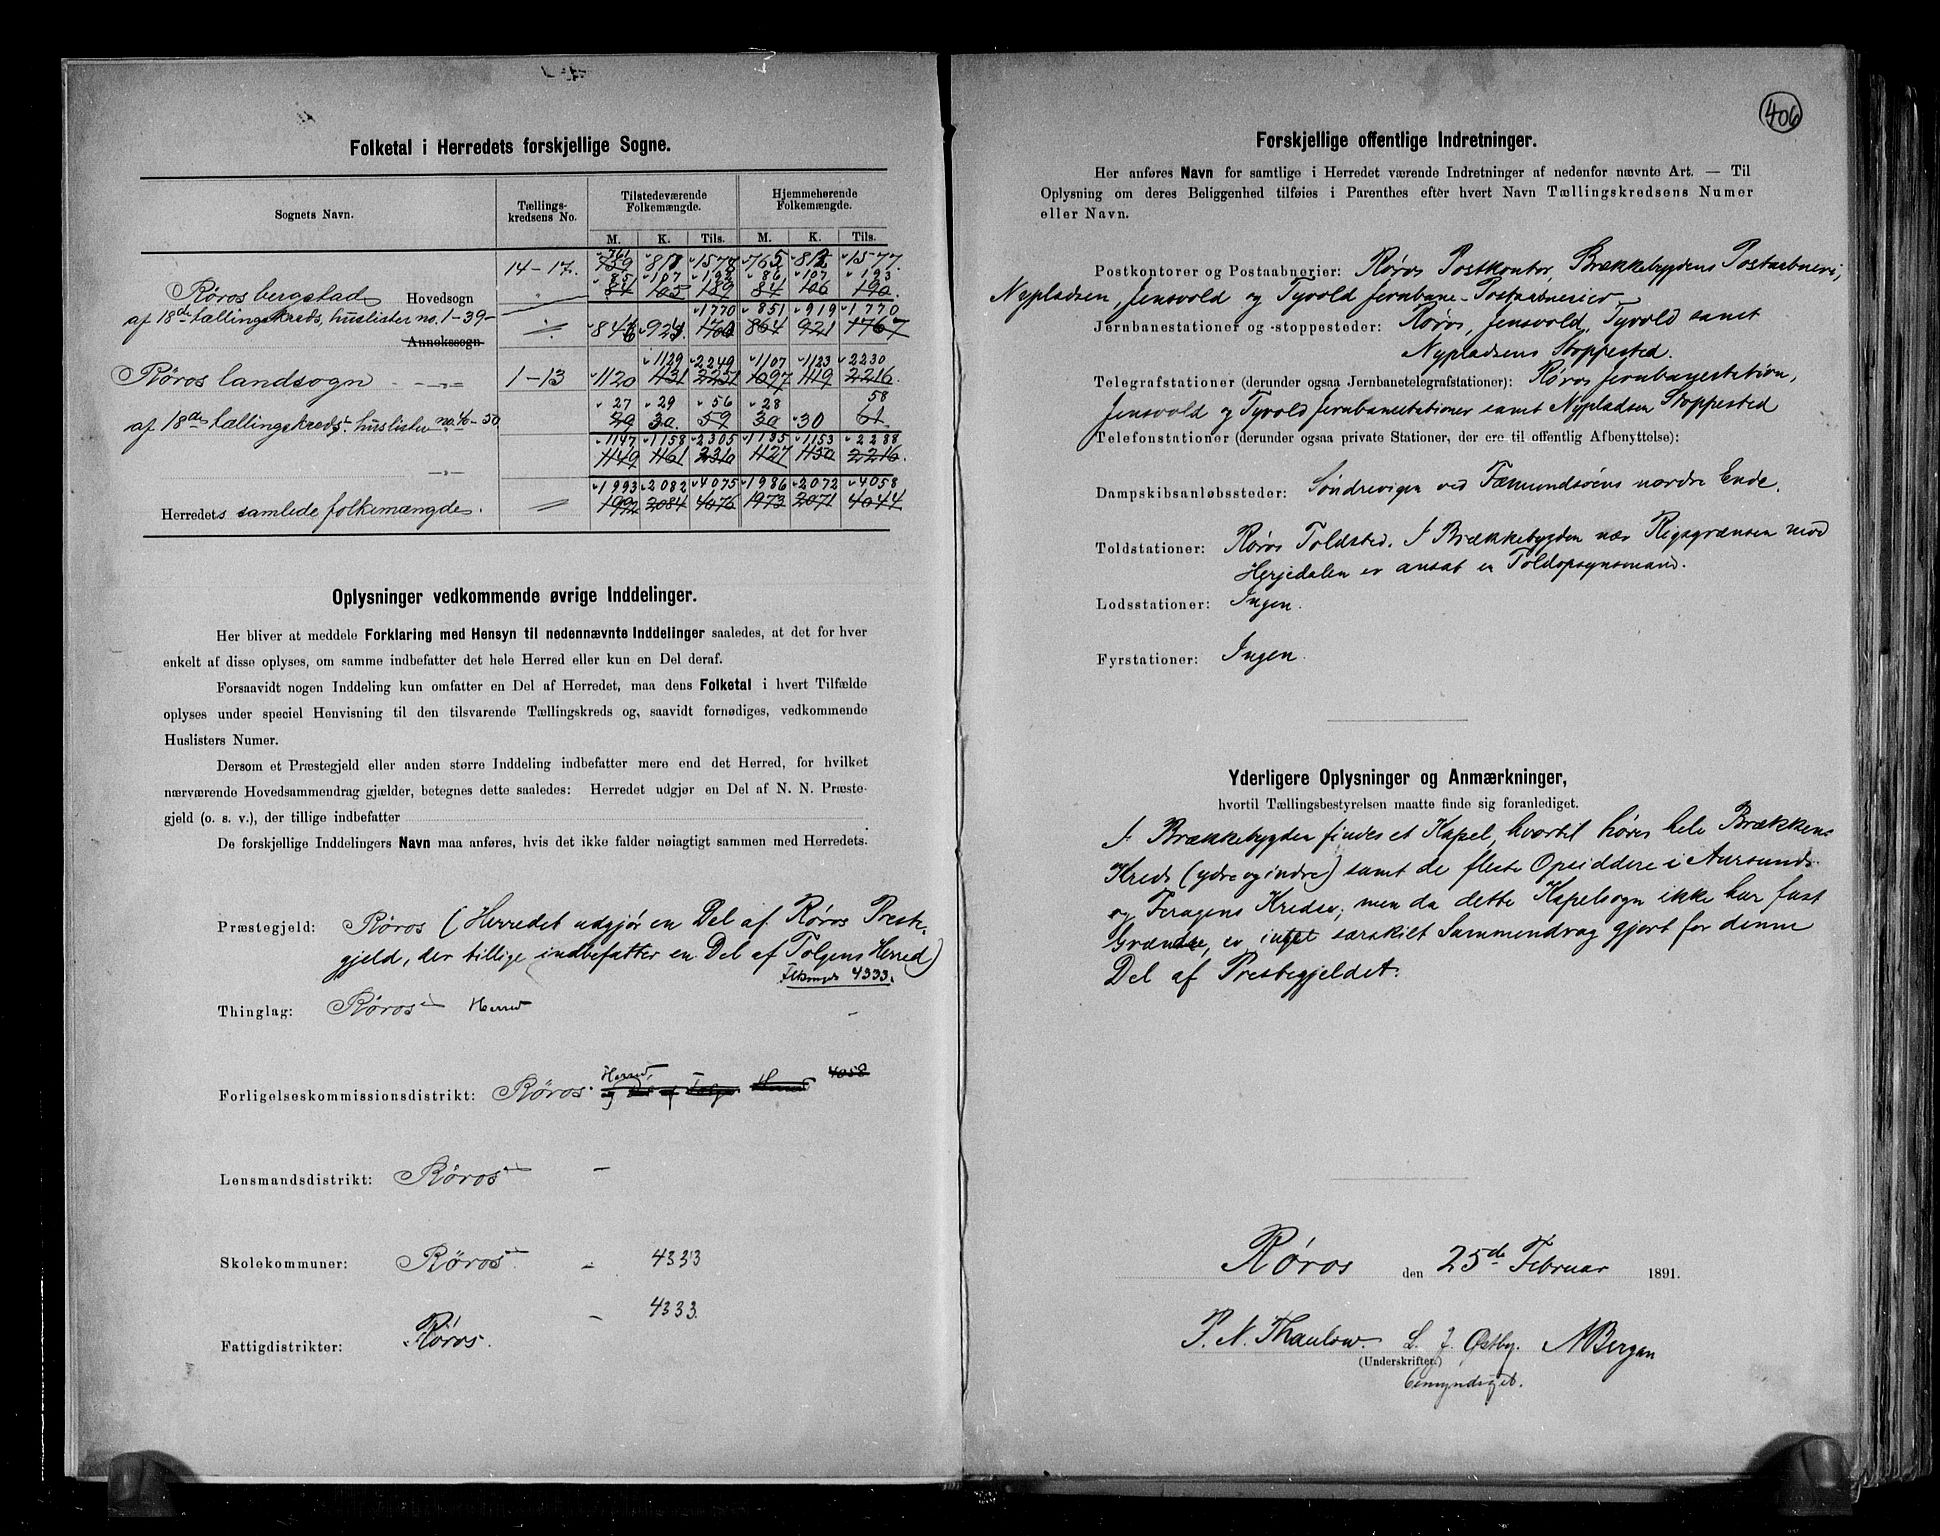 Folketal i Herredets forskjellige Sogne.
Sognets Navn.
Tællings-
kredsens No.
Tilstedeværende
Folkemængde.
Hjemmehørende
Folkemængde.
M. K. Tils. M. K. Tils.
14-17. 761 759 817 1578 765 812 1577.
85 107 192 86 107 193
Røros bergstad Hovedsogn 84 105 189 84 106 190.
1770 851 919 1770
af 18de tællingskreds, huslister no. 1-39-
Annekssogn
846 924 864 921 1767
1129 2249 1107 1123 2230
Røros landsogn 1-13 1120 1131 2251 1097 1119 2216.
27 29 56 28 58
af 18de tællingskreds, huslister no. 40-50 29 30. 59 30 30 61
1147 1158 2305 1135 1153 2288
1149 1161 2310 1127 1150 2216.
1993 2082 4075 1986 2072 4058
Herredets samlede folkemængde. 1992 2084 4076 1973 2071 4044
Oplysninger vedkommende øvrige Inddelinger.
Her bliver at meddele Forklaring med Hensyn til nedennævnte Inddelinger saaledes, at det for hver
enkelt af disse oplyses, om samme indbefatter det hele Herred eller kun en Del deraf.
Forsaavidt nogen Inddeling kun omfatter en Del af Herredet, maa dens Folketal i hvert Tilfælde
oplyses under speciel Henvisning til den tilsvarende Tællingskreds og, saavidt fornødiges, vedkommende
Huslisters Numer.
Dersom et Præstegjeld eller anden større Inddeling indbefatter mere end det Herred, for hvilket
nærværende Hovedsammendrag gjælder, betegnes dette saaledes: Herredet udgjør en Del af N. N. Præste-
gjeld (o. s. v.), der tillige indbefatter
De forskjellige Inddelingers Navn maa anføres, hvis det ikke falder nøiagtigt sammen med Herredets.
Præstegjeld: Røros (Herredet udgjør en Del af Røros Prest-
gjeld, der tillige indbefatter en Del af Tolgens Herred)
4333.
Thinglag: Røros Herred
Forligelseskommissionsdistrikt: Røros Herred, og Del af Tolgen Herred 4058
Lensmandsdistrikt: Røros
Skolekommuner: Røros 4333
Fattigdistrikter: Røros. 4333.
406
Forskjellige offentlige Indretninger.
Her anføres Navn for samtlige i Herredet værende Indretninger af nedenfor nævnte Art. — Til
Oplysning om deres Beliggenhed tilføies i Parenthes efter hvert Navn Tællingskredsens Numer
eller Navn.
Postkontorer og Postaabnerier: Røros Postkontor, Brækkebygdens Postaabneri,
Nypladsen, Jensvold og Tyvold Jernbane-Postaabnerier
Jernbanestationer og -stoppesteder: Røros, Jensvold, Tyvold samt
Nypladsens Stoppested.
Telegrafstationer (derunder ogsaa Jernbanetelegrafstationer): Røros Jernbanestation,
Jensvold og Tyvold Jernbanestationer samt Nypladsen Stoppested
Telefonstationer (derunder ogsaa private Stationer, der ere til offentlig Afbenyttelse):
Dampskibsanløbssteder: Söndrevigen ved Fæmundsöens nordre Ende.
Toldstationer: Røros Toldsted. I Brækkebygden nær Rigsgrænsen mod
Herjedalen er ansat en Toldopsynsmand.
Lodsstationer: Ingen.
Fyrstationer: Ingen.
Yderligere Oplysninger og Anmærkninger,
hvortil Tællingsbestyrelsen maatte finde sig foranlediget.
I Brækkebygden findes et Kapel, hvortil hører hele Brækkens
Kreds (ydre og indre) samt de fleste Opsiddere i Aursunds
og Feragens Kredse; men da dette Kapelsogn ikke har fast
Grændse, er intet særskilt Sammendrag gjort for denne
Del af Prestegjeldet.
Røros den 25de Februar 1891.
P. N. Thaulow. L. J. Østby. A Bergan
(Underskrifter.)
bemyndiget.